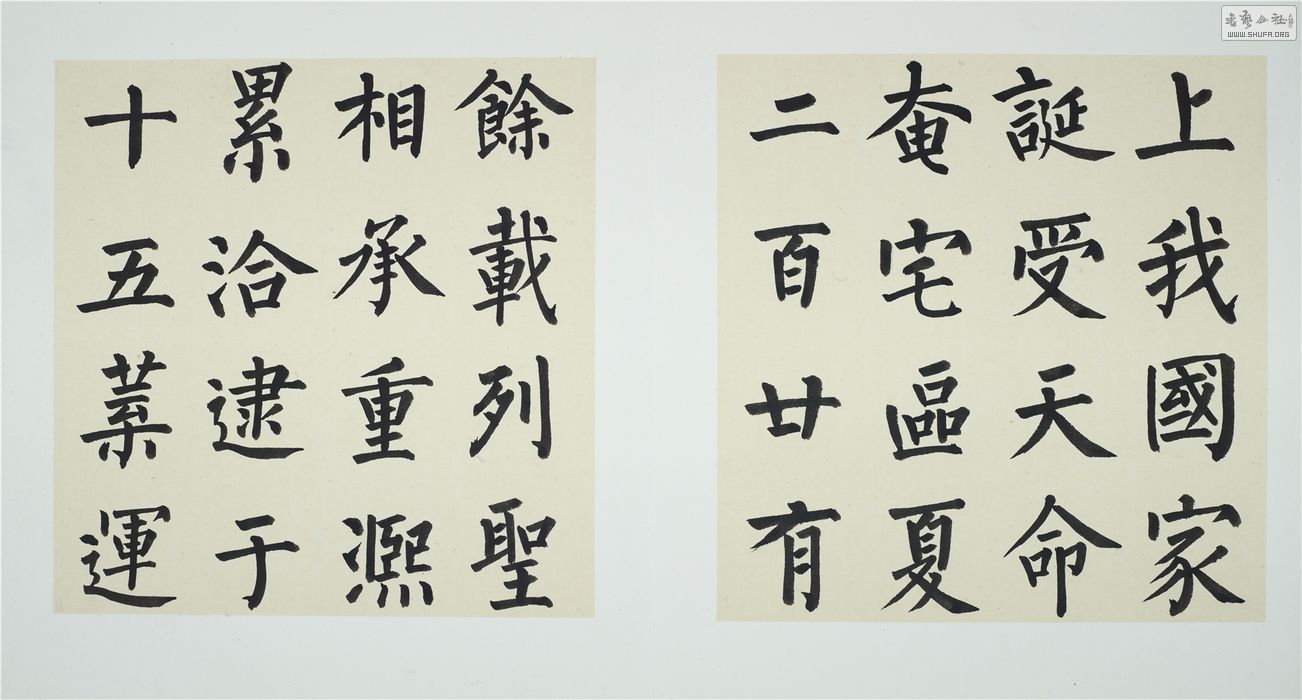 上我國家
誕受天命
奄宅區夏
二百廿有
餘載列聖
相承重凞
累洽逮于
十五葉運
書藝公社
WWW.SHUFA.ORG